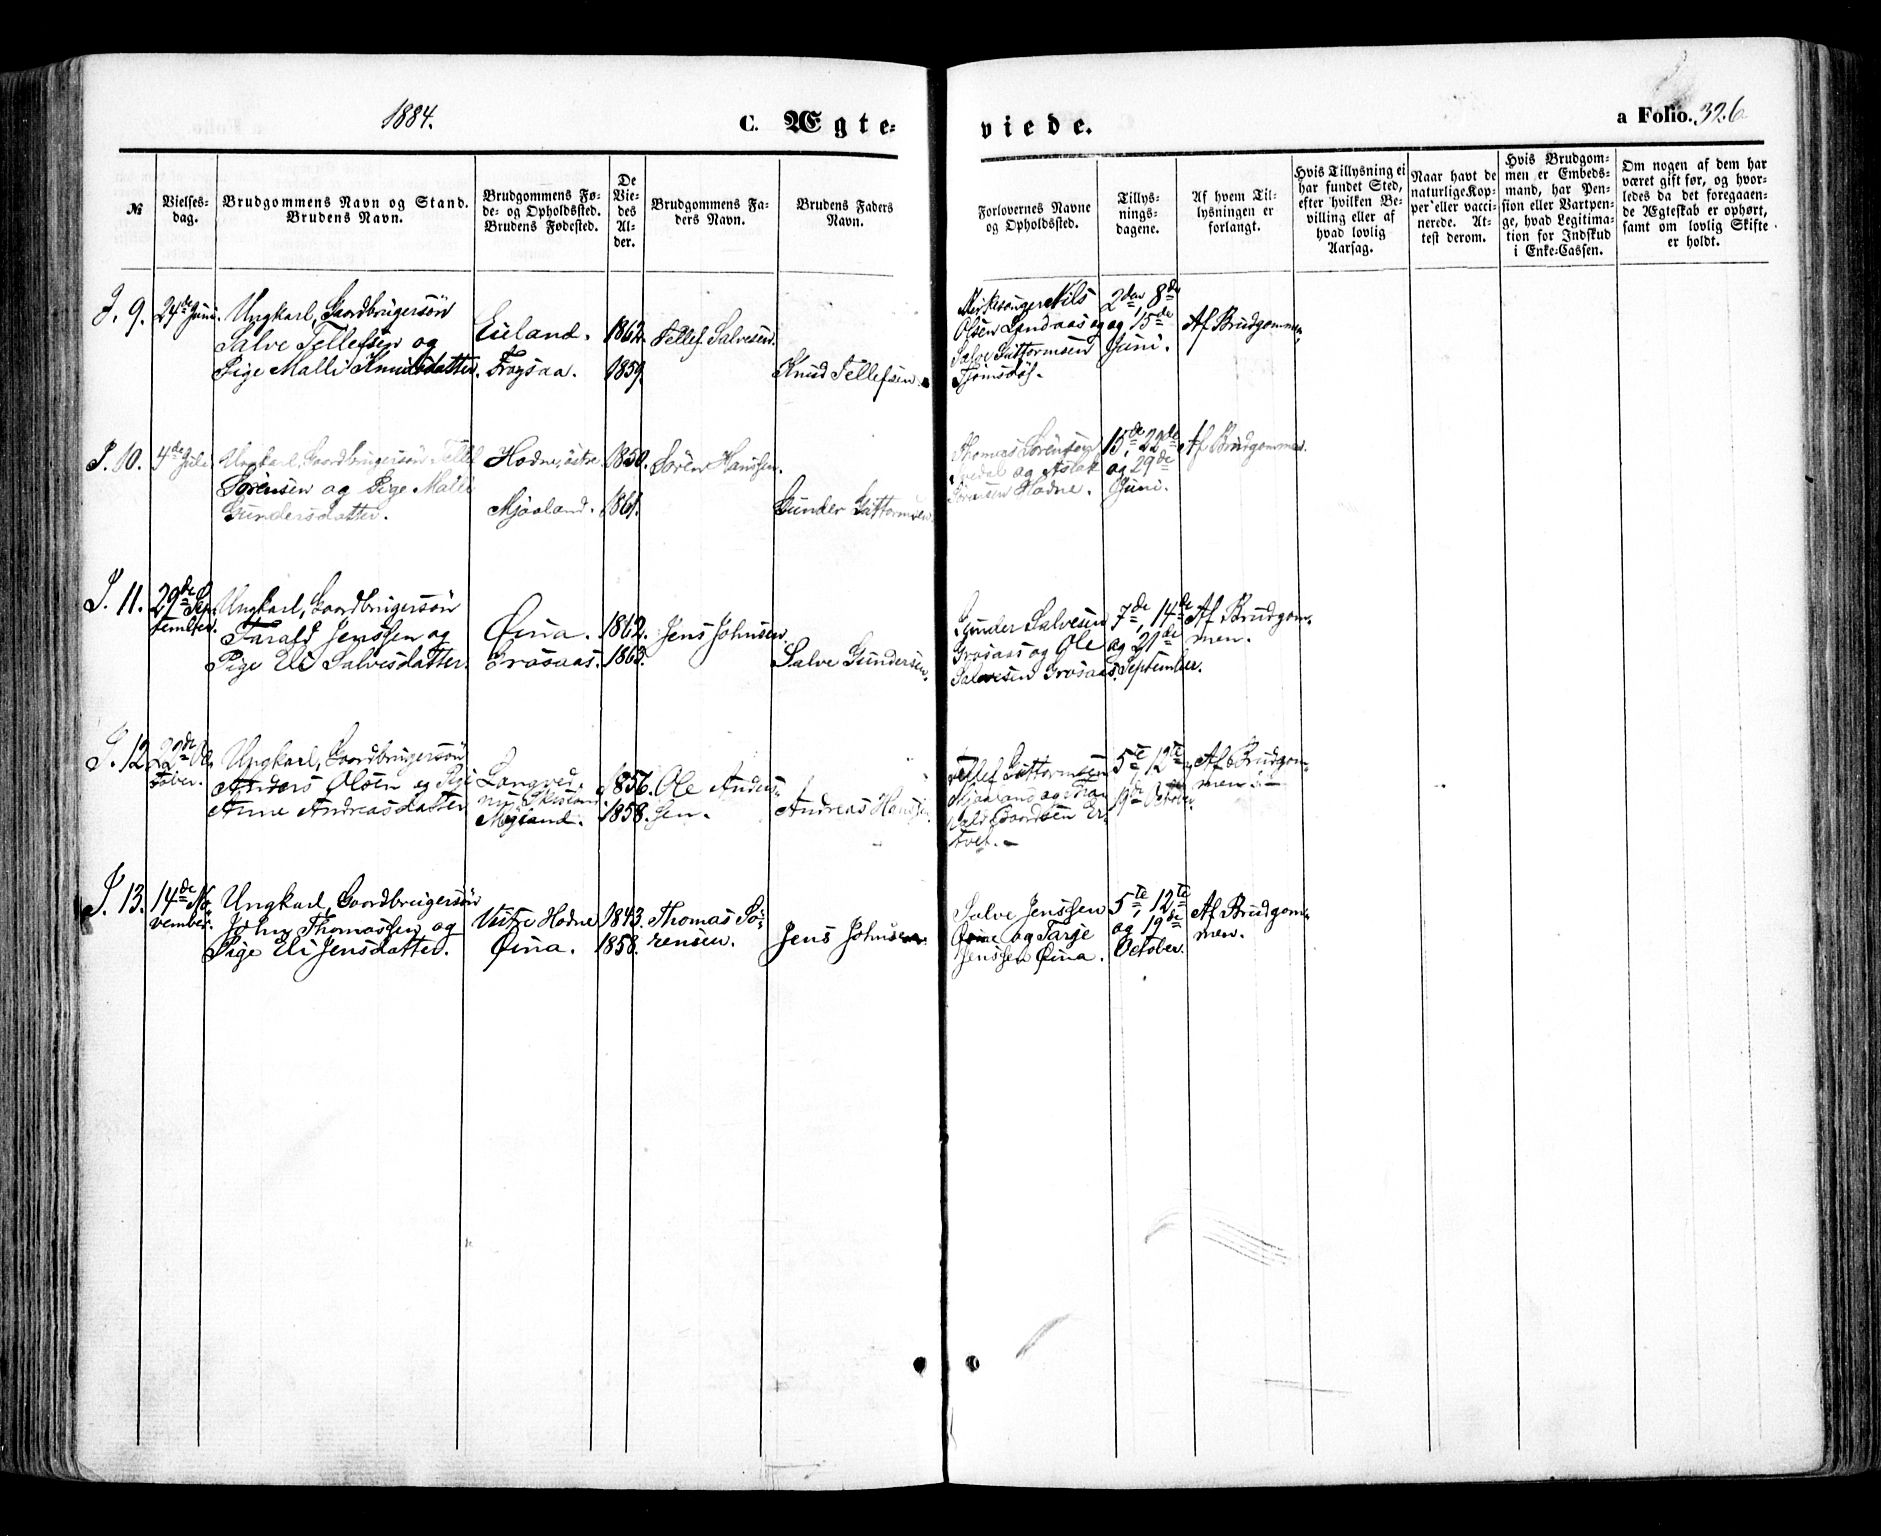 1884.
C. Ægte-
viede.
a Folio. 326
№
Vielses-
dag.
Brudgommens Navn og Stand.
Brudens Navn.
Brudgommens Fø-
de- og Opholdssted.
Brudens Fødested.
De
Vie-
des
Al-
der.
Brudgommens Fa-
ders Navn.
Brudens Faders
Navn.
Forlovernes Navne
og Opholdssted.
Tillys-
nings-
dagene.
Af hvem Til-
lysningen er
forlangt.
Hvis Tillysning ei
har fundet Sted,
efter hvilken Be-
villing eller af
hvad lovlig
Aarsag.
Naar havt de
naturlige Kop-
per eller vacci-
nerede. At-
test derom.
Hvis Brudgom-
men er Embeds-
mand, har Pen-
sion eller Vartpen-
ge, hvad Legitima-
tion for Indskud
i Enke-Cassen.
Om nogen af dem har
været gift før, og hvor-
ledes da det foregaaen-
de Ægteskab er ophørt,
samt om lovlig Skifte
er holdt.
9.
24de Juni.
Ungkarl, Gaardbrugersøn
Salve Tellefsen og
Pige Malli Knudsdatter.
Eieland.
Frøysaa.
1862.
1859.
Tellef Salvesen.
Knud Tellefsen.
Kirkesanger Nils
Olsen Landaas og
Salve Guttormsen
Tjomsdøl.
2den, 8de
og 15de
Juni.
Af Brudgommen.
10.
4de Juli
Ungkarl, Gaardbrugersøn Tellef
Sørensen og Pige Malli
Gundersdatter.
Hodne, østre
Mjaaland.
1850.
1861.
Søren Hanssen.
Gunder Guttormsen.
Thomas Sørensen
og Aslak
Sørensen Hodne.
15de, 22de
og 29de
Juni.
Af Brudgommen.
11.
29de Sep-
tember.
Ungkarl, Gaardbrugersøn
Tarald Jenssen og
Pige Eli Salvesdatter.
Øina.
Grosaas.
1862.
1863.
Jens Johnsen.
Salve Gundersen.
Gunder Salvesen
Grosaas og Ole
Salvesen Grosaas.
7de, 14de
og 21de
September.
Af Brudgom-
men.
12.
22de Oc-
tober.
Ungkarl, Gaardbrugersøn
Anders Olsen og Pige
Anne Andreasdatter
Langeid,
Skisland.
Mysand.
1856.
1858.
Ole Anders-
sen.
Andreas Hanssen.
Tellef Guttormsen
Mjaaland og Ta-
rald Gaardsen Er-
tvet.
5te, 12te
og
19de October.
Af Brudgom-
men.
13.
14de No-
vember.
Ungkarl, Gaardbrugersøn
John Thomassen og
Pige Eli Jensdatter.
Vestre Hodne
Øina.
1843.
1858.
Thomas Sø-
rensen.
Jens Johnsen.
Salve Jenssen
Øine og Tarje
Jenssen Øina.
5te, 12te
og 19de
October.
Af Brudgom-
men.